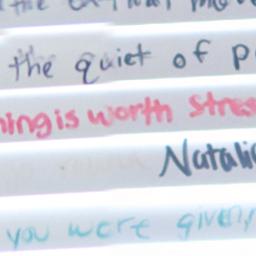 the
the quiet of p
hing is worth stres
Natali
you were given